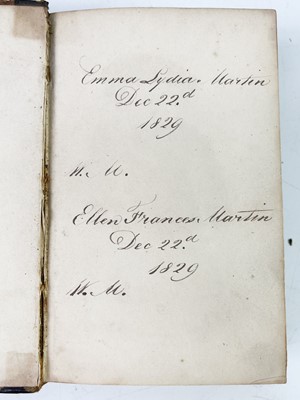 Emma Lydia. Martin
Dec 22.d
1829
W. M.
Ellen Frances. Martin
Dec 22.d
1829
W. M.